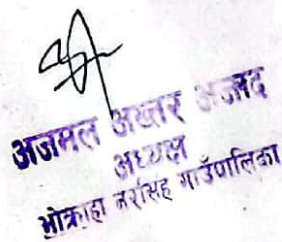 अजमल अख्तर आजाद
अध्यक्ष
भोक्राहा नरसिंह गाउँपालिका